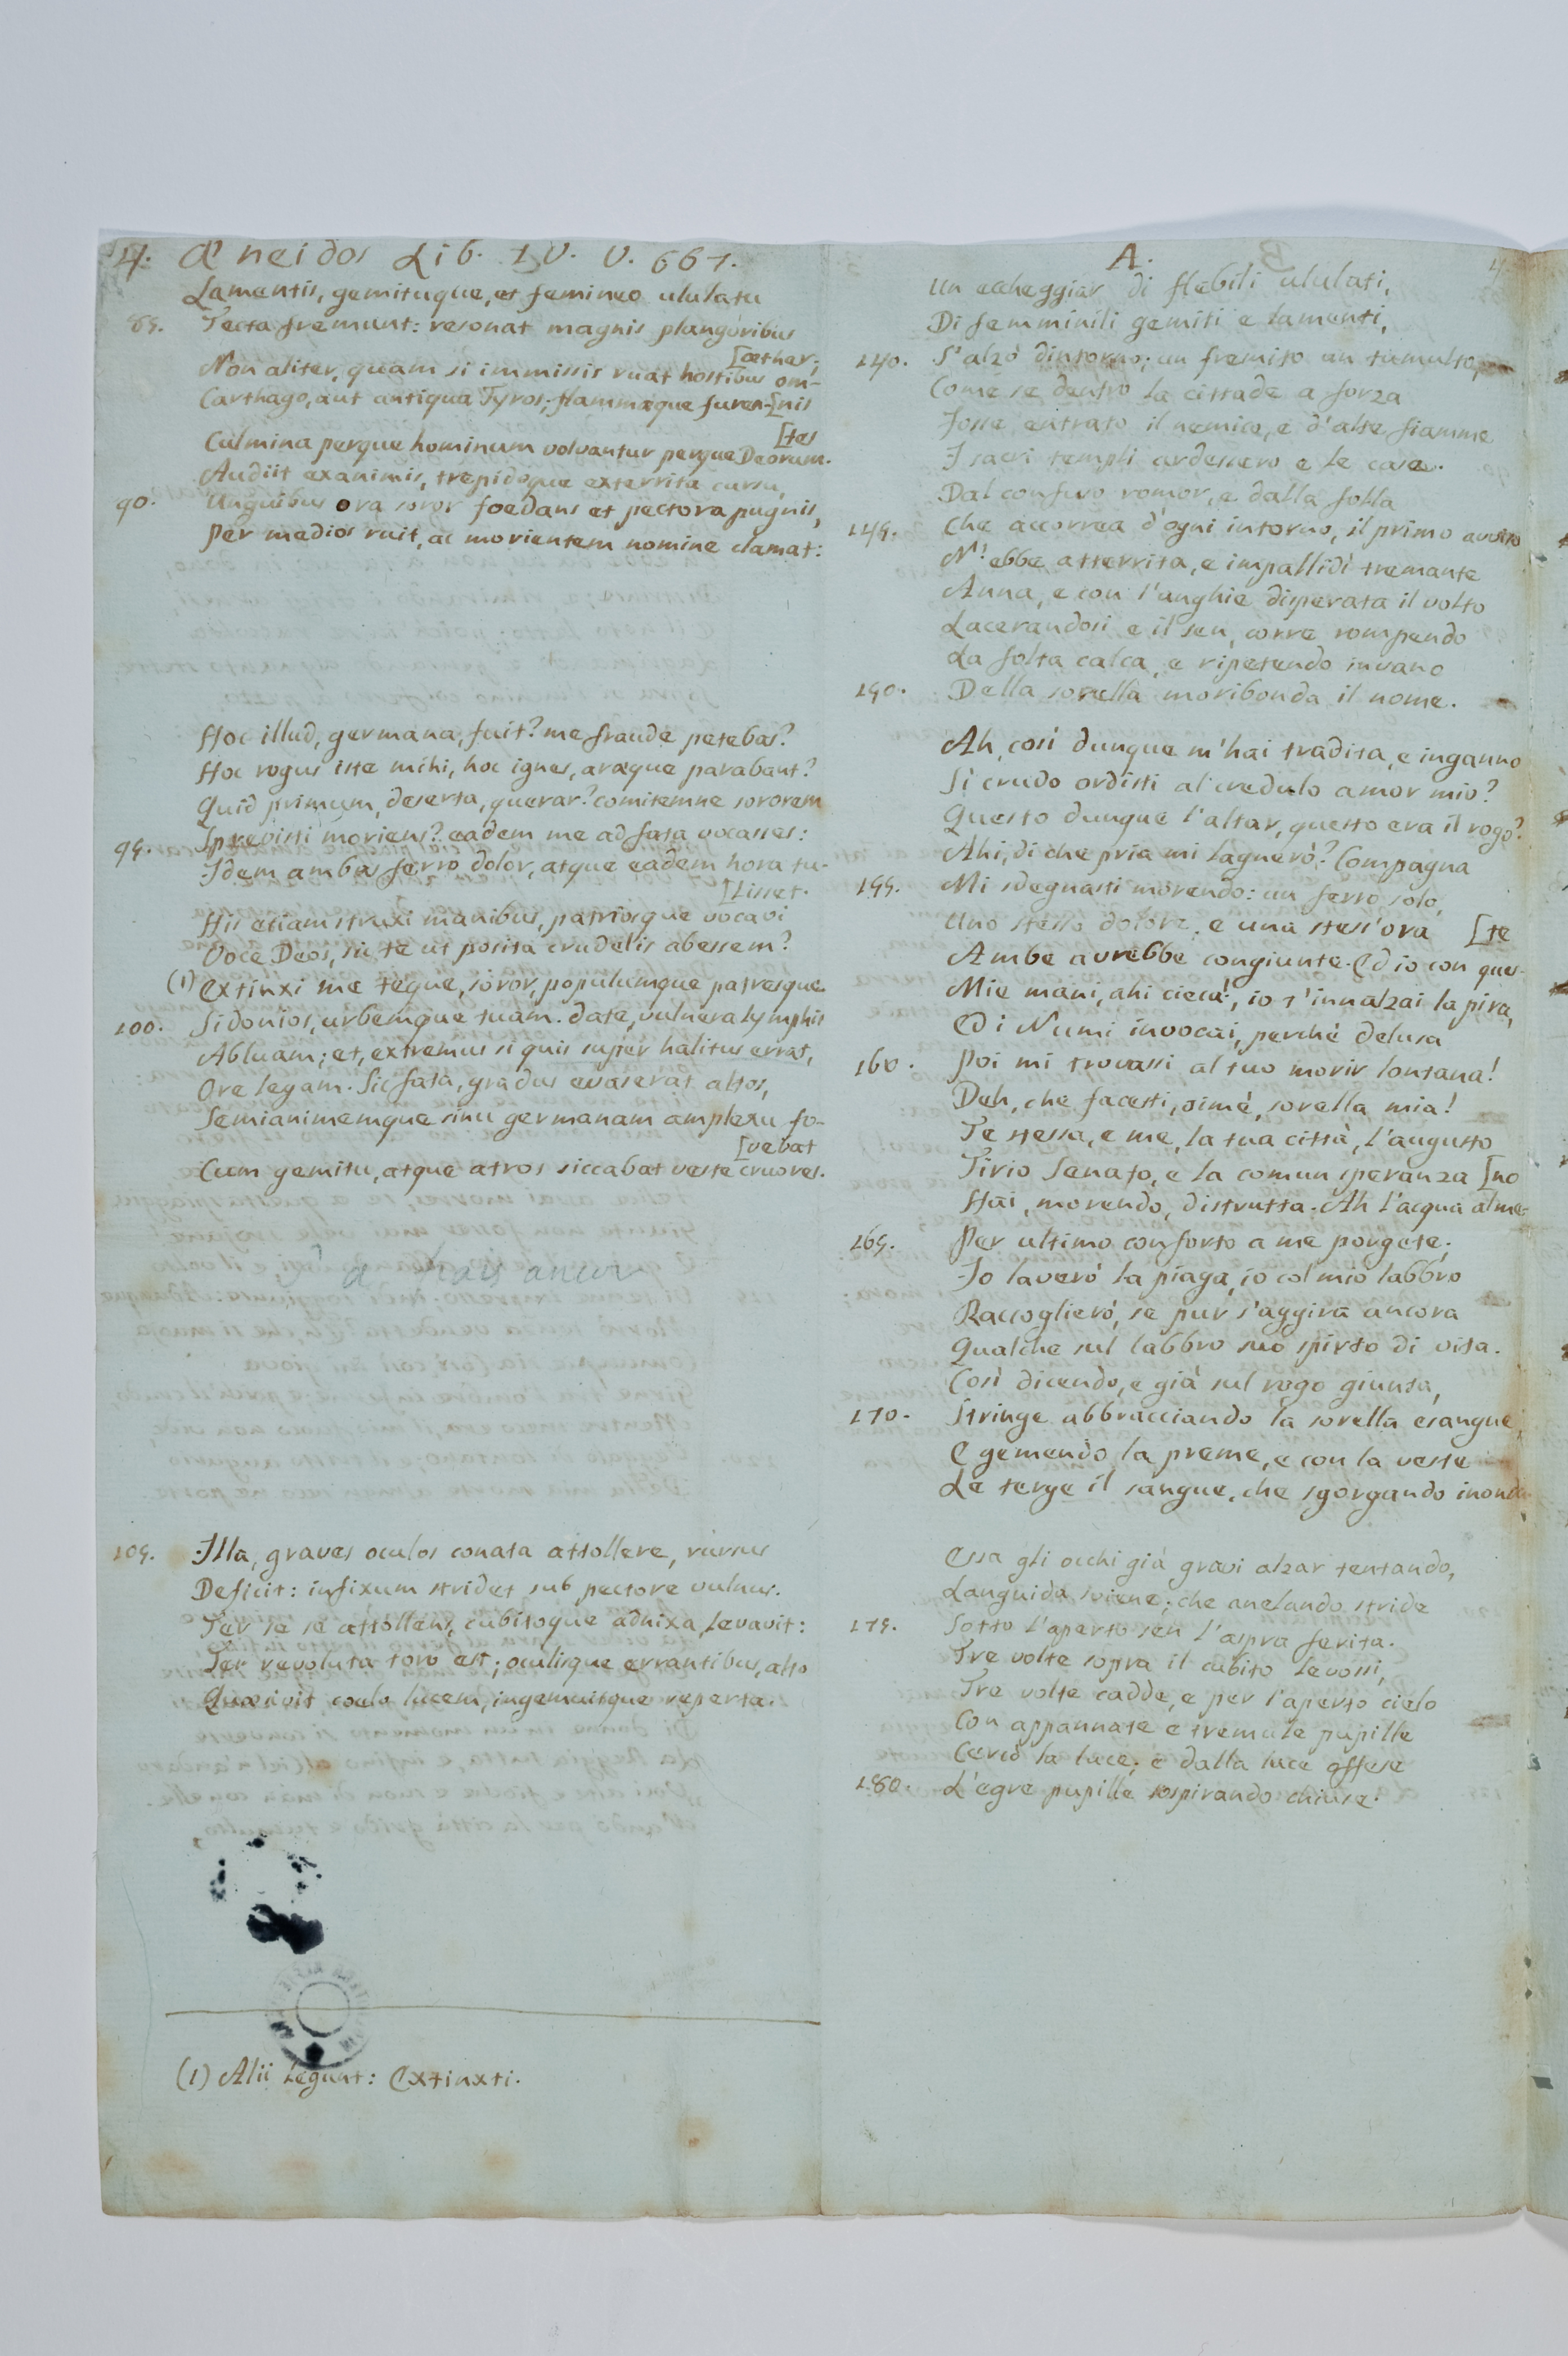 4. Æneidos Lib. IV. V. 667.
Lamentis, gemituque, et femineo ululatu
85. Tecta fremunt: resonat magnis plangoribus
[æther;
Non aliter, quam si immissis ruat hostibus om-
Carthago, aut antiqua Tyros; flammæque furen-[nis
[tes
Culmina perque hominum volvantur perque Deorum.
Audiit exanimis, trepidoque exterrita cursu,
90. Unguibus ora soror foedans et pectora pugnis,
Per medios ruit, ac morientem nomine clamat:
Hoc illud, germana, fuit? me fraude petebas?
Hoc rogus iste mihi, hoc ignes, aræque parabant?
Quid primum, deserta, querar? comitemne sororem
95. Sprevisti moriens? eadem me ad fata vocasses:
Idem ambas ferro dolor, atque eadem hora tu-
[lisset.
His etiam struxi manibus, patriosque vocavi
Voce Deos, sic te ut posita crudelis abessem?
(1) Extinxi me teque, soror, populumque patresque
100. Sidonios, urbemque tuam. date, vulnera lymphis
Abluam; et, extremus si quis super halitus errat,
Ore legam. Sic fata, gradus evaserat altos,
Semianimemque sinu germanam amplexu fo-
[vebat
Cum gemitu, atque atros siccabat veste cruores.
105. Illa, graves oculos conata attollere, rursus
Deficit: infixum stridet sub pectore vulnus.
Ter se se attollens, cubitoque adnixa levavit:
Ter revoluta toro est; oculisque errantibus, alto
Quæsivit coelo lucem, ingemuitque reperta.
(1) Alii legunt: Extinxti.
A. 4
Un eccheggiar di flebili ululati,
Di femminili gemiti e lamenti,
140. S'alzò dintorno; un fremito un tumulto,
Come se dentro la cittade a forza
Fosse entrato il nemico, e d'alte fiamme
I sacri templi ardessero e le case.
Dal confuso romor, e dalla folla
145. Che accorrea d'ogni intorno, il primo avviso
N'ebbe atterrita, e impallidì tremante
Anna, e con l'unghie disperata il volto
Lacerandosi e il sen, corre rompendo
La folta calca, e ripetendo invano
150. Della sorella moribonda il nome.
Ah, così dunque m'hai tradita, e inganno
Sì crudo ordisti al credulo amor mio?
Questo dunque l'altar, questo era il rogo?
Ahi, di che pria mi lagnerò? Compagna
155. Mi sdegnasti morendo: un ferro solo,
Uno stesso dolore, e una stess'ora [te
Ambe avrebbe congiunte. Ed io con ques-
Mie mani, ahi cieca!, io t'innalzai la pira,
Ed i Numi invocai, perchè delusa
160. Poi mi trovassi al tuo morir lontana!
Deh, che facesti, oimè, sorella mia!
Te stessa, e me, la tua città, l'augusto
Tirio Senato, e la comun speranza [no
Hai, morendo, distrutta. Ah l'acqua alme-
165. Per ultimo conforto a me porgete;
Io laverò la piaga, io col mio labbro
Raccoglierò, se pur s'aggira ancora
Qualche sul labbro suo spirto di vita.
Così dicendo, e già sul rogo giunta,
170. Stringe abbracciando la sorella esangue,
E gemendo la preme, e con la veste
Le terge il sangue, che sgorgando inonda.
Essa gli occhi già gravi alzar tentando,
Languida sviene; che anelando stride
175. Sotto l'aperto sen l'aspra ferita.
Tre volte sopra il cubito levossi,
Tre volte cadde, e per l'aperto cielo
Con appannate e tremule pupille
Cercò la luce; e dalla luce offese
180. L'egre pupille sospirando chiuse.